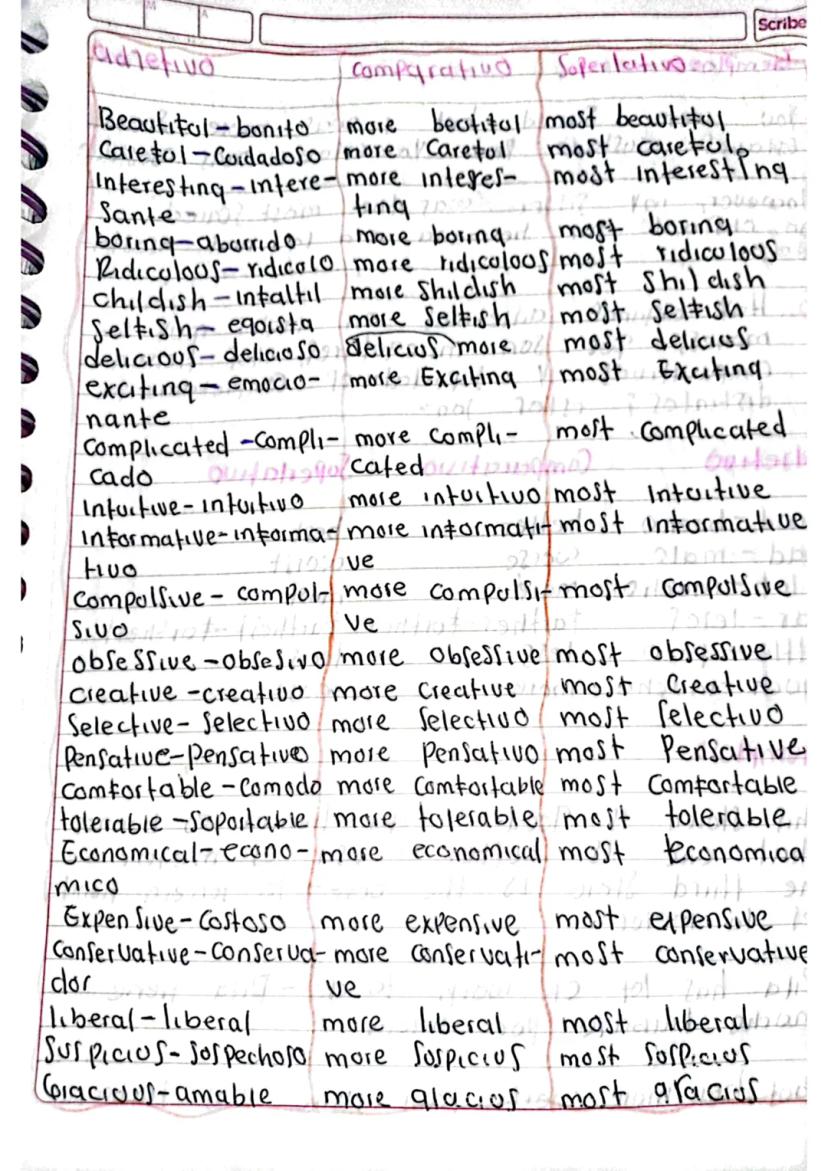 Scribe
adjetivo comparativo Soperlativo
Beautifol-bonito more beotifol most beautifol
Carefol-Cuidadoso more Carefol most carefol
Interesting-intere- more interes- most interesting
Sante- ting
boring-aborrido more boring most boring
Ridicoloos-ridicolo more ridicoloos most ridicoloos
childish-infaltil more Shildish most Shildish
Selfish-egoista more Selfish most Selfish
delicious-delicioso delicios more most delicios
exciting-emocio- more Exciting most Exciting
nante
complicated-compli- more compli- most complicated
cado cated
Intuitive-intuitivo more intuitivo most Intuitive
Informative-informa- more informati- most informative
tivo ve
compolsive-compol- more compolsi- most compolsive
sivo ve
obsessive-obsesivo more obsessive most obsessive
creative-creativo more creative most creative
Selective-Selectivo more Selectivo most Selectivo
Pensative-pensativo more Pensativo most Pensative
comfortable-comodo more comfortable most comfortable
tolerable-Soportable more tolerable most tolerable
Economical-econo- more economical most economica
mico
Expensive-costoso more expensive most expensive
conservative-conserva- more conservati- most conservative
dor ve
liberal-liberal more liberal most liberal
Suspicios-sospechoso more Sospicios most Sospicios
Gracious-amable more glacios most gracios